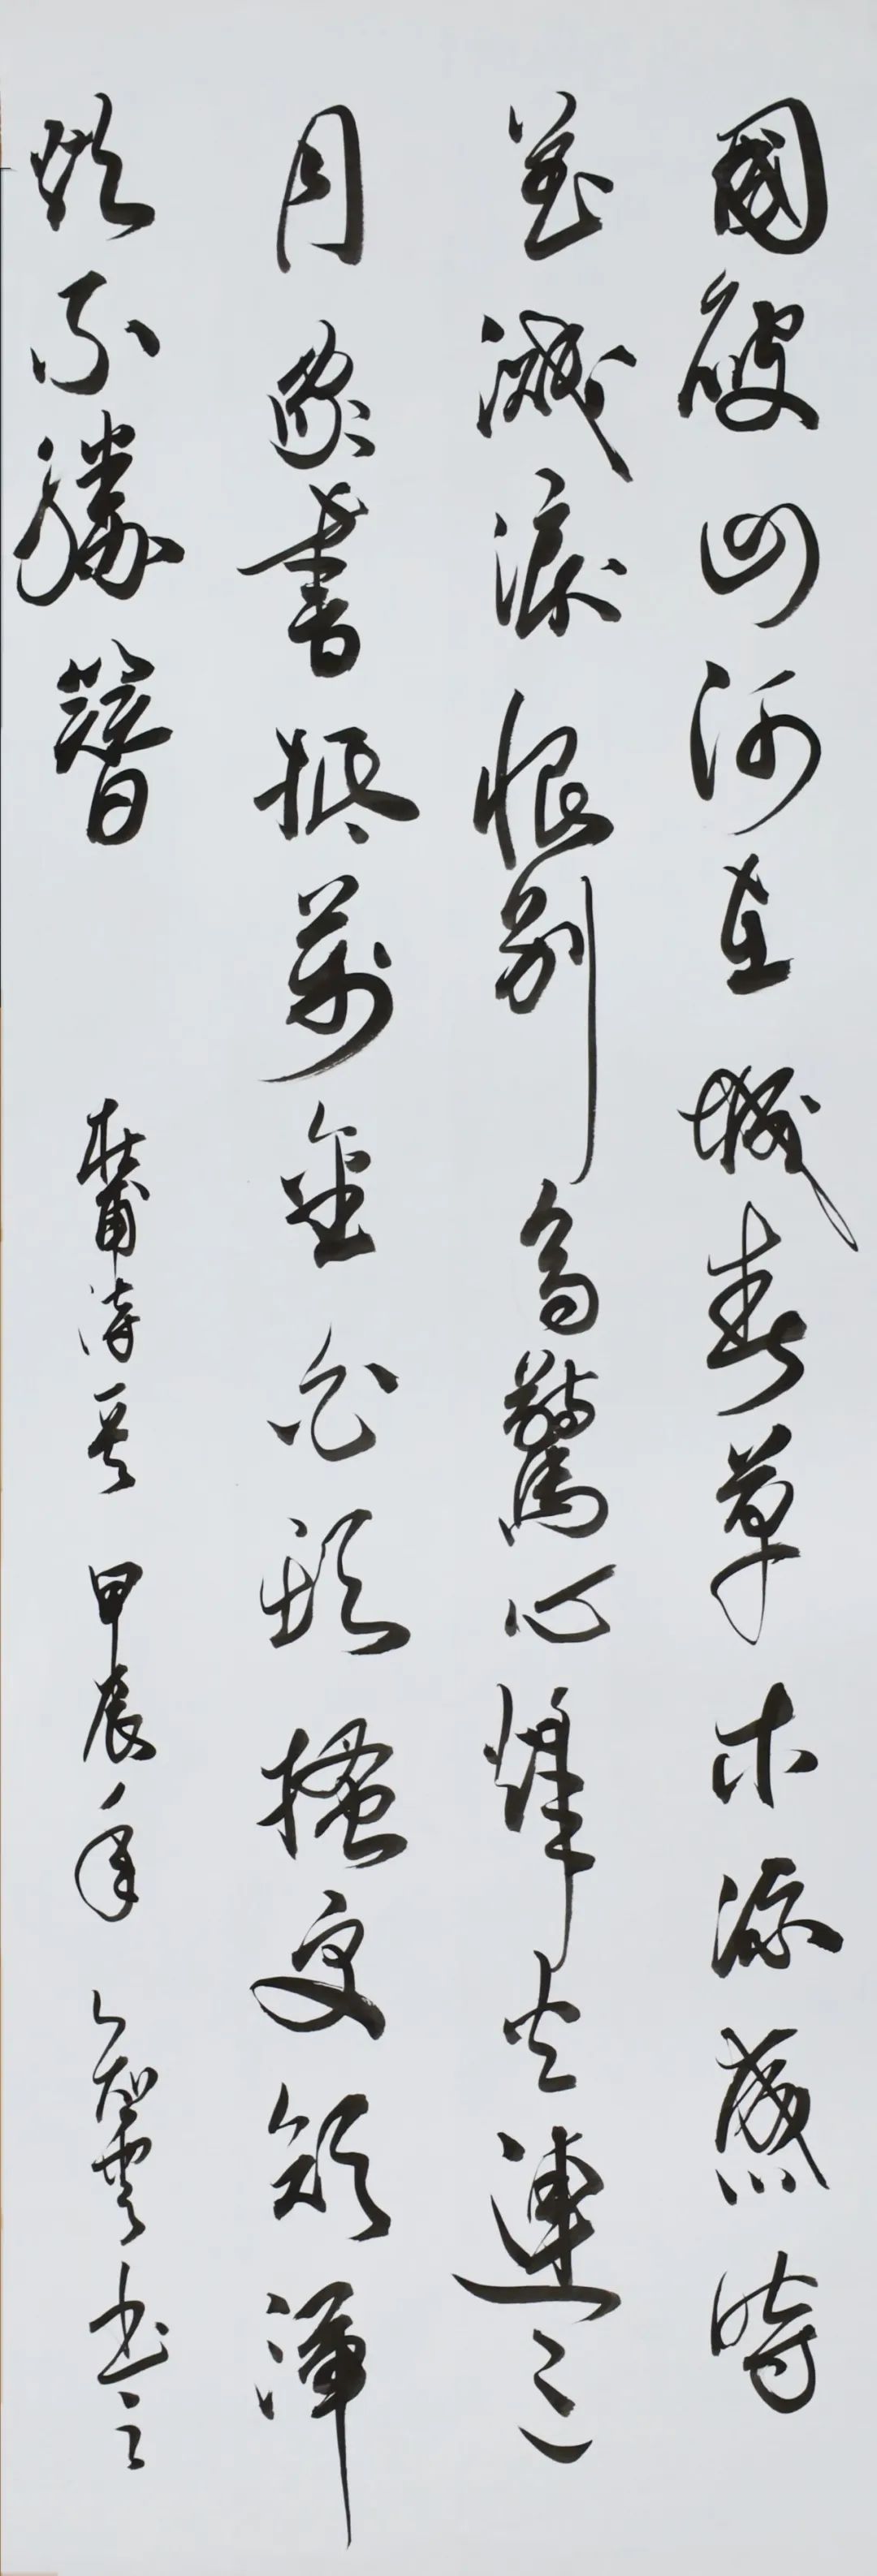 國破山河在城春草木深感時
花濺淚恨別鳥驚心烽火連三
月家書抵萬金白頭搔更短渾
欲不勝簪 杜甫詩一首 甲辰年 雲書之